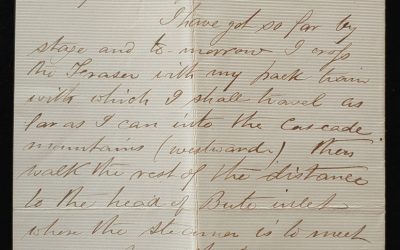 I have got so far by
stage and to-morrow I cross
the Fraser with my pack train
with which I shall travel as
far as I can into the Cascade
mountains (westward.) then
walk the rest of the distance
to the head of Bute inlet
where the steamer is to meet